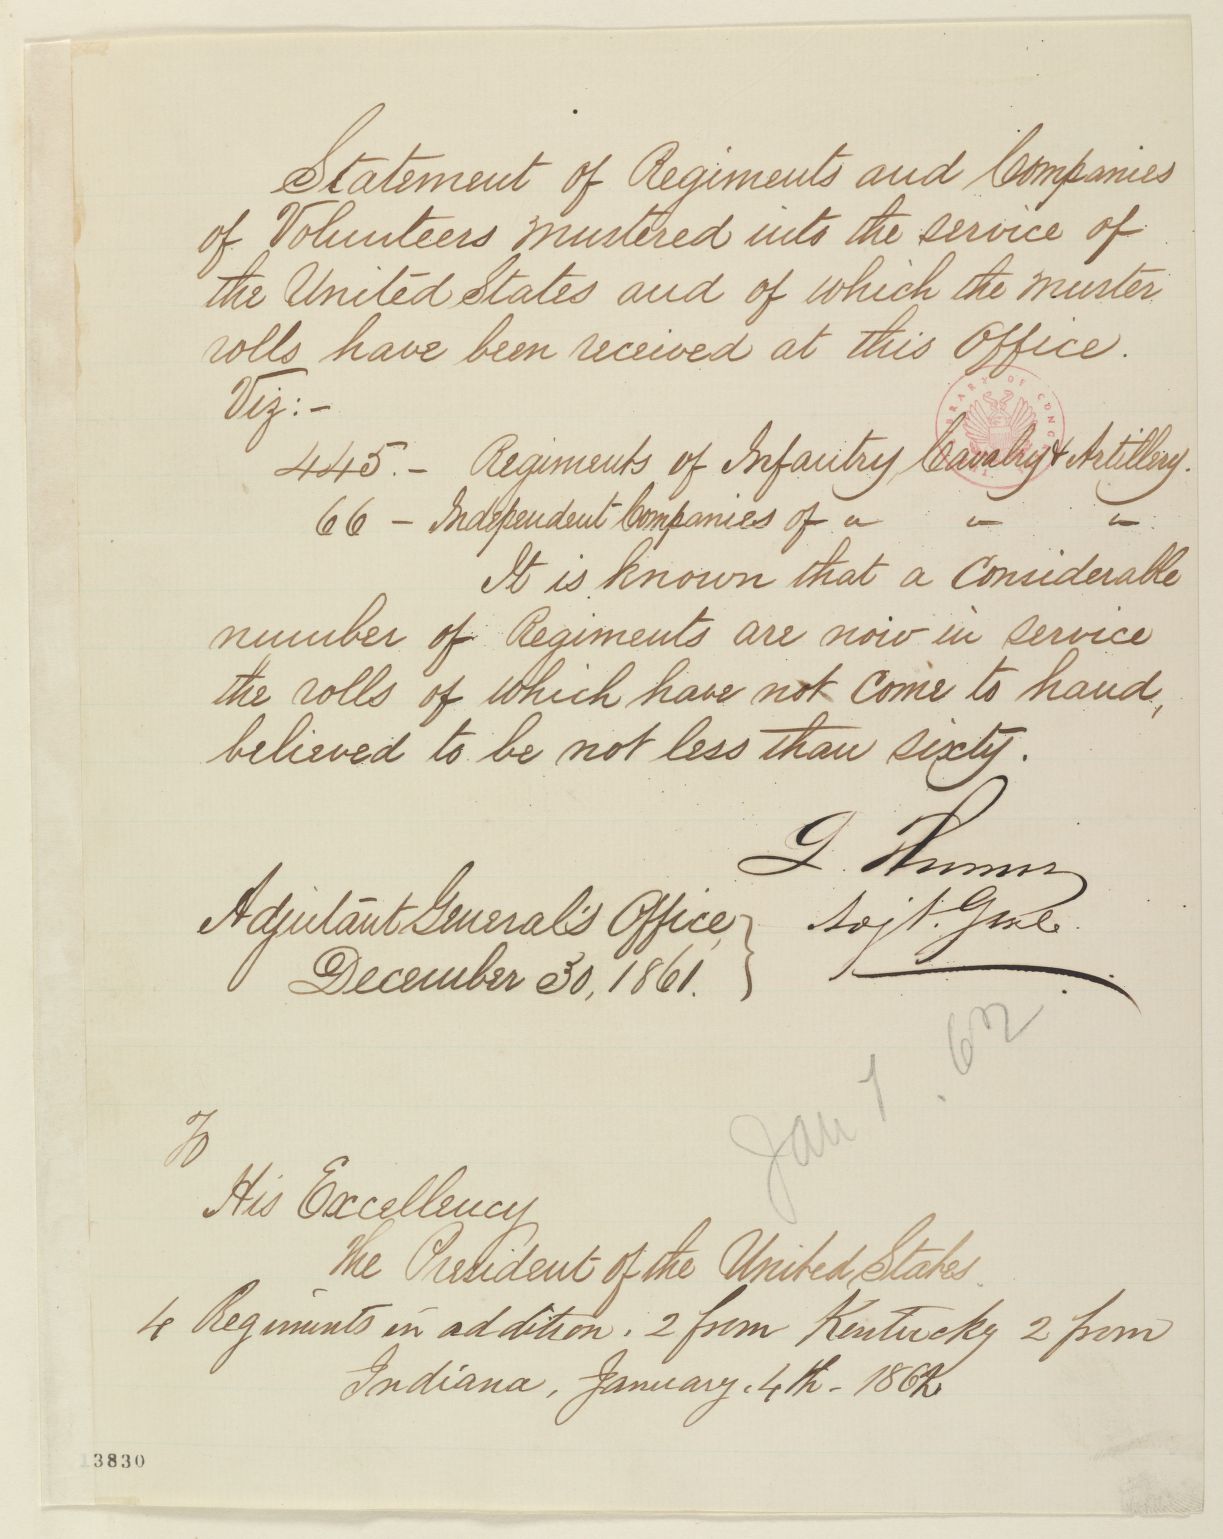 Statement of Regiments and Companies
of Volunteers mustered into the service of
the United States and of which the muster
rolls have been received at this Office.
Viz:-
445. - Regiments of Infantry, Cavalry & Artillery.
66 - Independent Companies of " " "
It is known that a considerable
number of Regiments are now in service
the rolls of which have not come to hand,
believed to be not less than sixty.
L. Thomas
Adjt. Genl.
Adjutant General's Office,
December 30, 1861.
Jan 1. 62
To
His Excellency
The President of the United States.
4 Regiments in addition. 2 from Kentucky 2 from
Indiana, January. 4th - 1862
13830